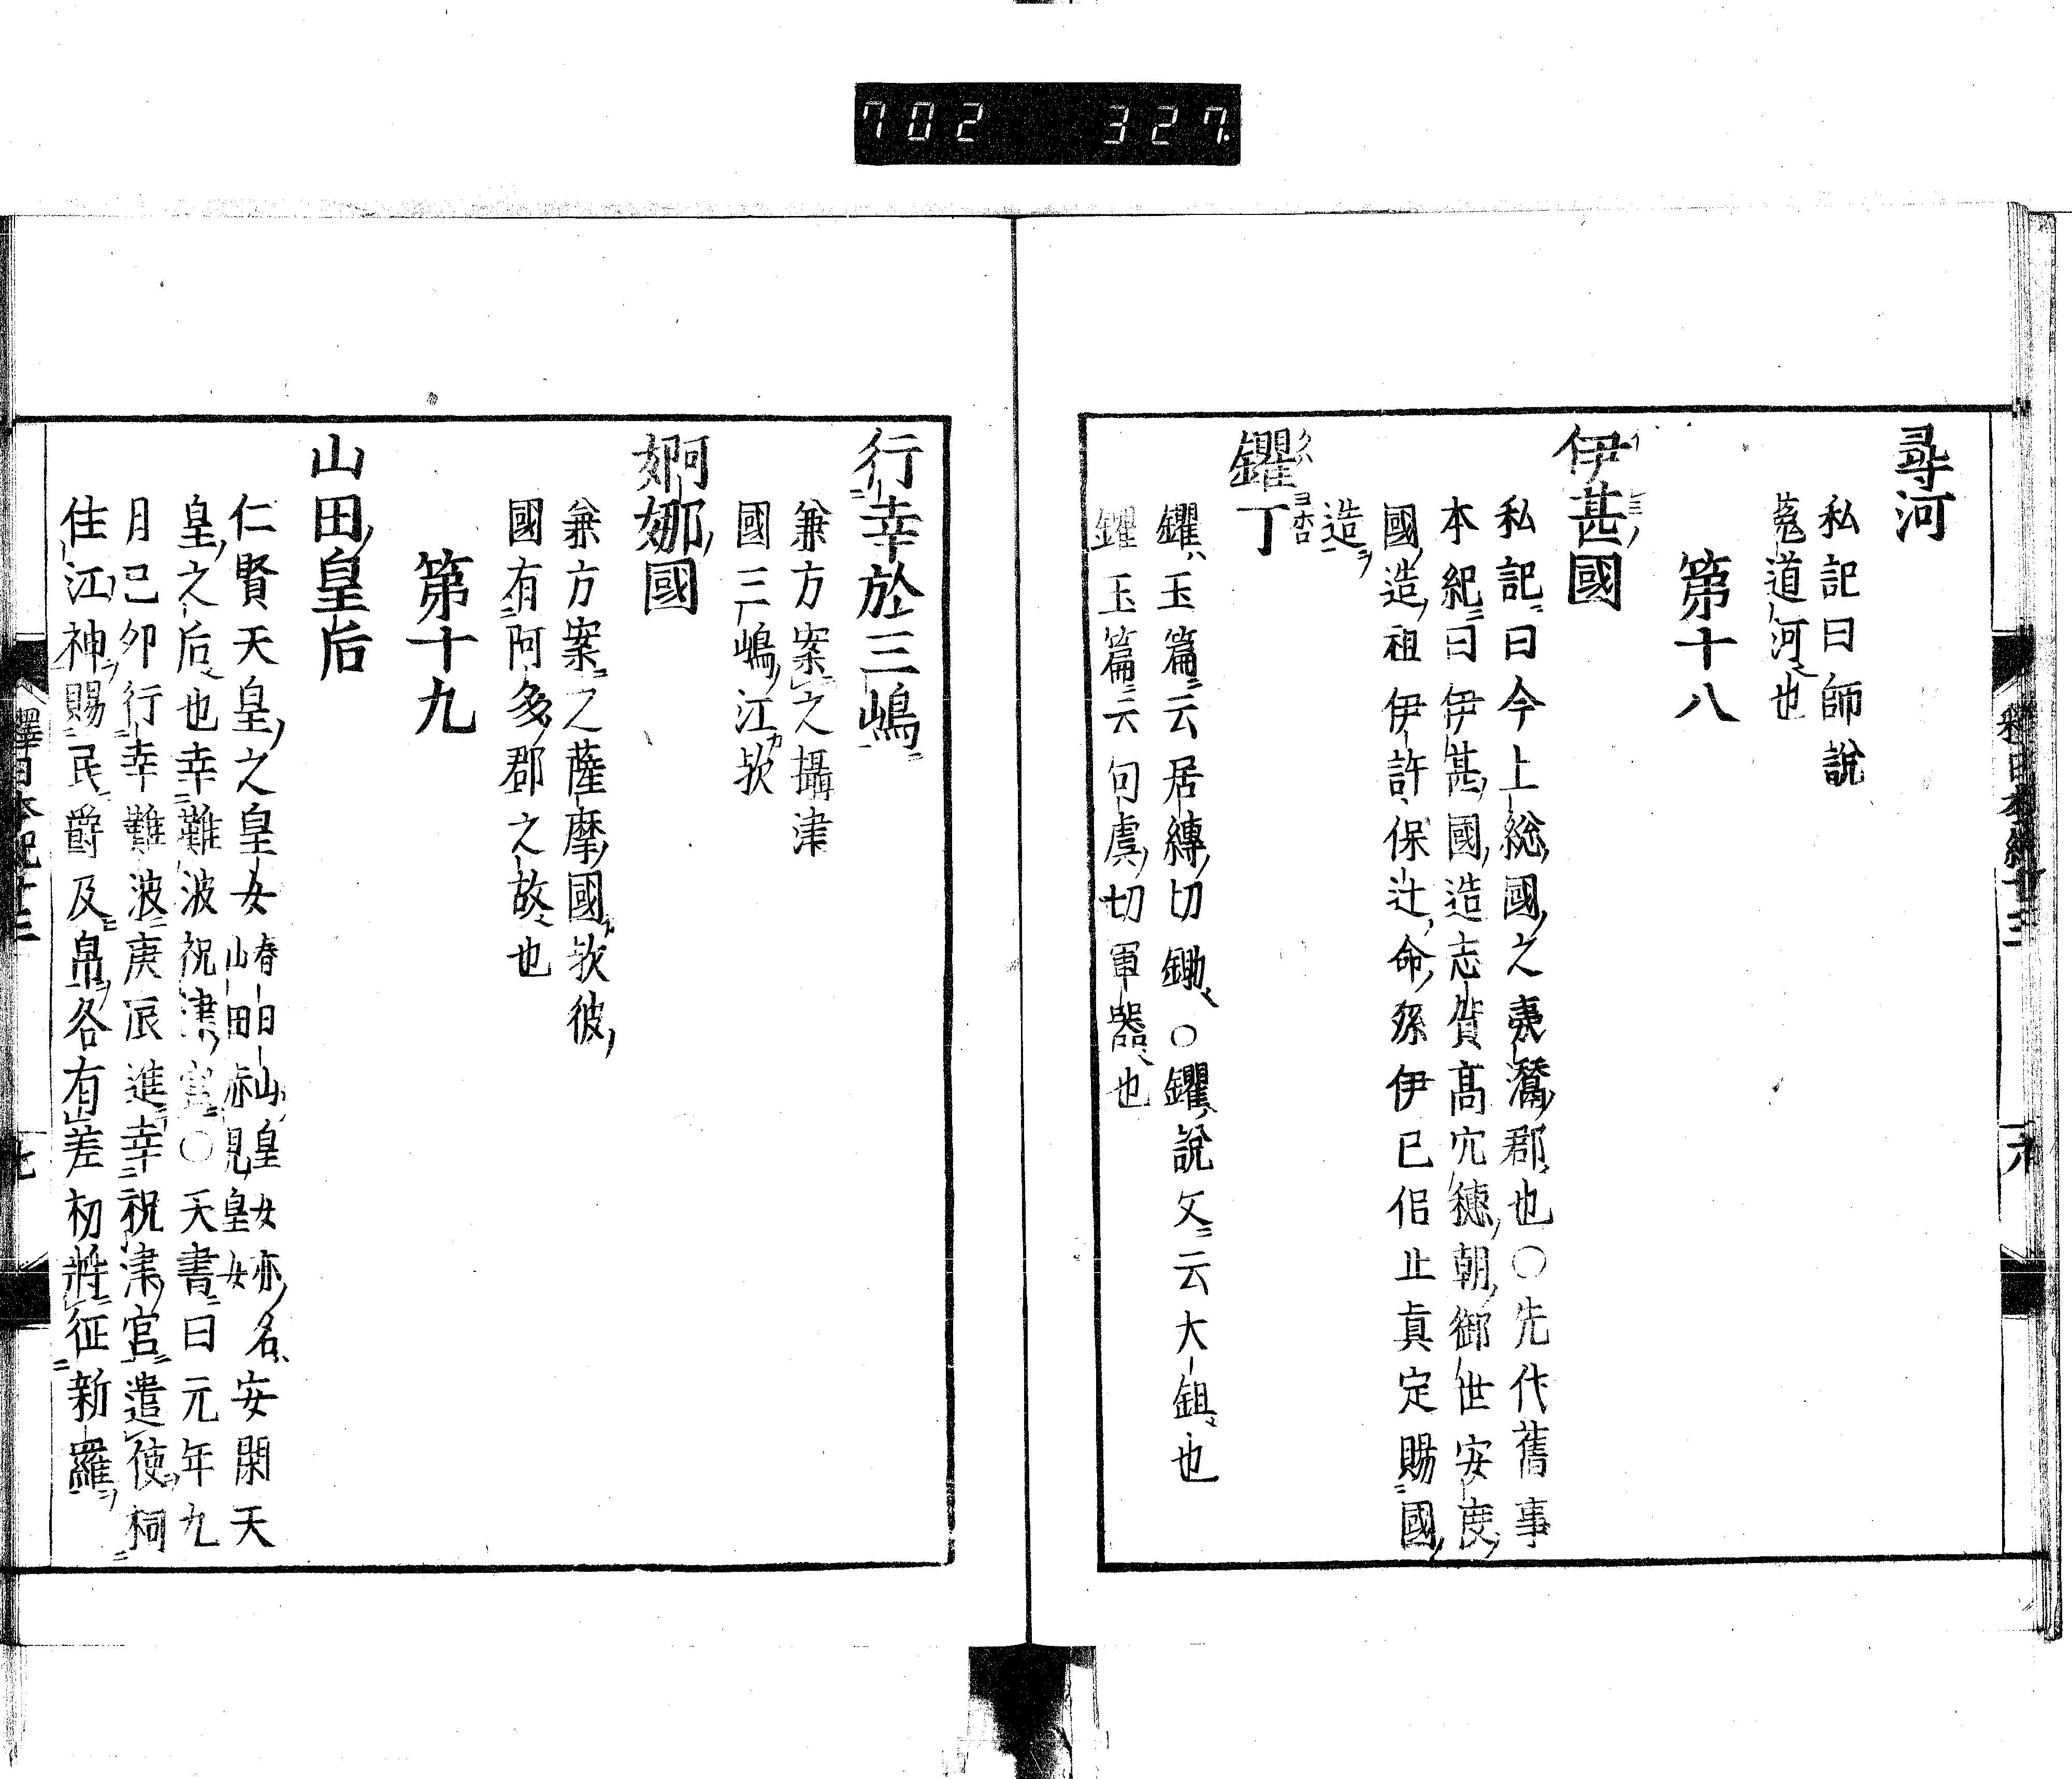 702 327
尋河
私記曰師說
菟道河也
第十八
伊甚國
私記曰今上総國之夷灊郡也〇先代舊事
本紀曰伊甚國造志賀高穴穗朝御世安度
國造祖伊許保止命孫伊己侶止真定賜國
造
钁丁
钁玉篇云居縳切鋤〇钁說文云大鉏也
钁玉篇云句虞切軍器也
行幸於三嶋
兼方案之攝津
國三嶋江歟
婀娜國
兼方案之薩摩國歟彼
國有阿多郡之故也
第十九
山田皇后
仁賢天皇之皇女春日山皇女亦名山田赤見皇女安閑天
皇之后也幸難波祝津宮〇天書曰元年九
月己卯行幸難波庚辰進幸祝津宮遣使祠
住江神賜民爵及帛各有差初將征新羅